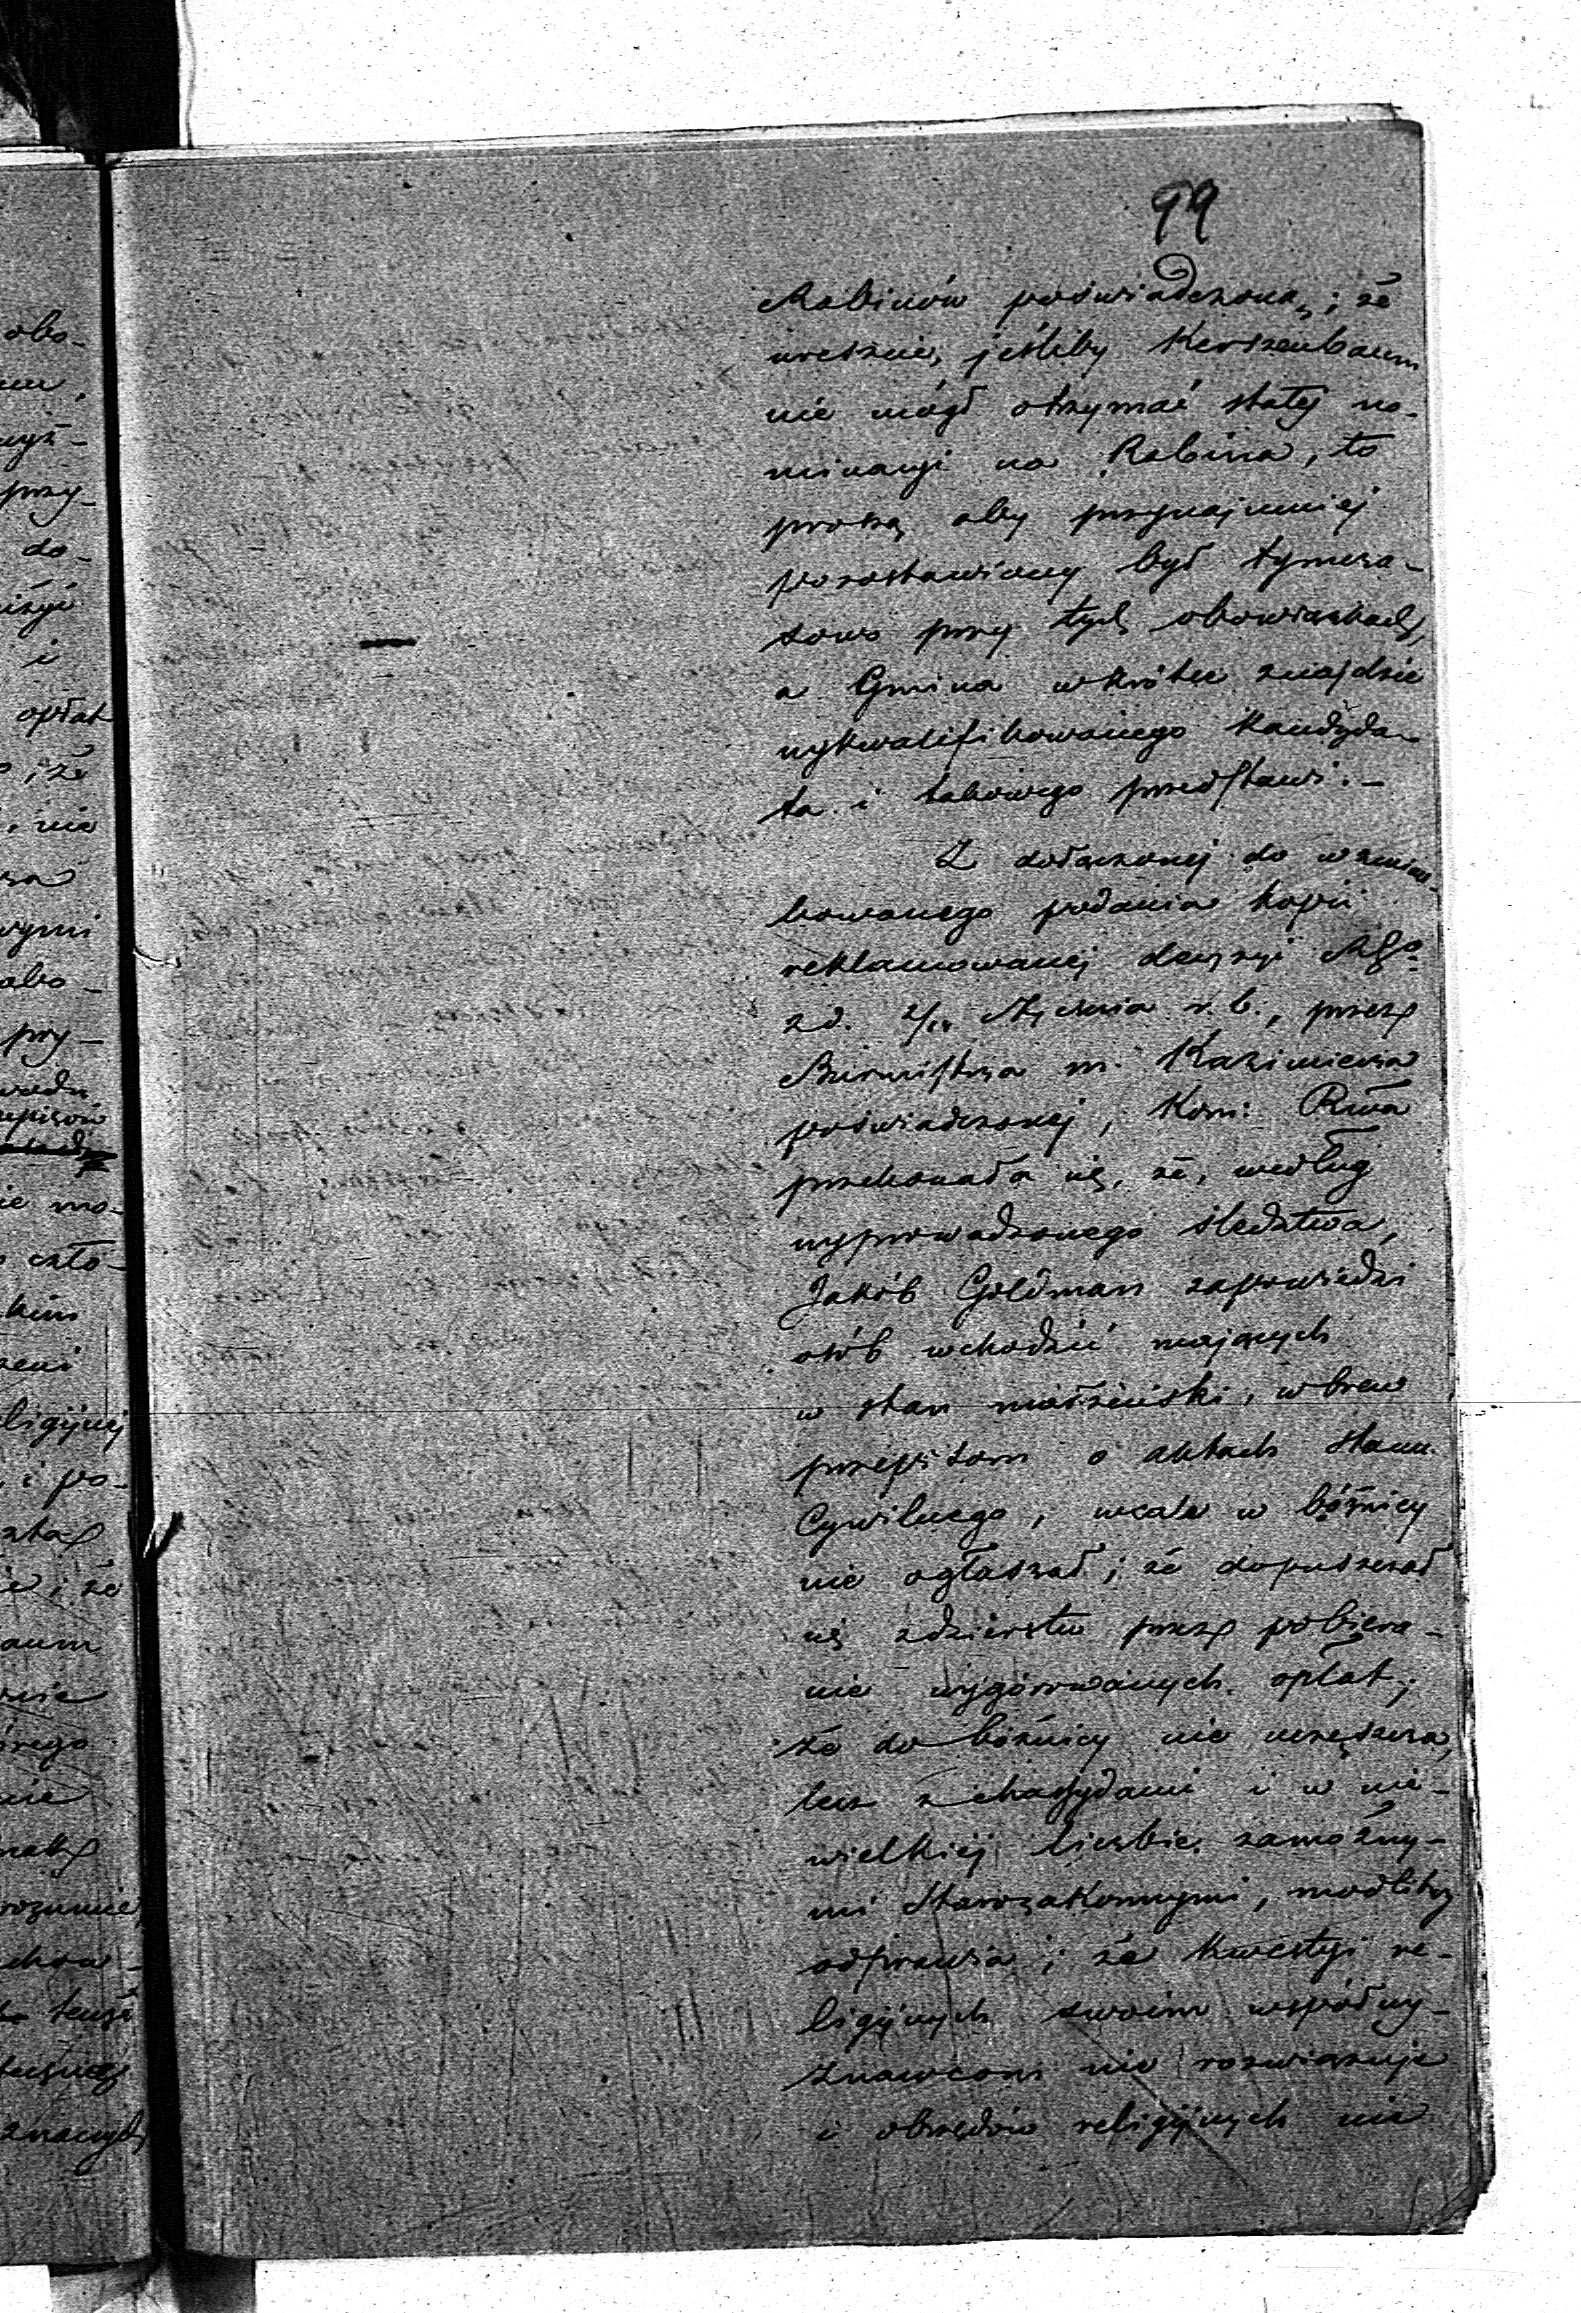 99
Rabinów poświadczoną; że
wreszcie, jeśliby Kerszenbaum
nie mógł otrzymać stałej no-
minacyi na Rabina, to
proszą aby przynajmniej
pozostawiony był tymcza-
sowo przy tych obowiązkach,
a Gmina wkrótce znajdzie
wykwalifikowanego kandyda-
ta i takowego przedstawi. –
Z dołączonej do wzmian-
kowanego podania kopii
reklamowanej decyzyi
z d. Stycznia r. b., przez
Burmistrza m. Kazimierza
poświadczonej, Kom: Rwa
przekonała się, że, według
wyprowadzonego śledztwa,
Jakób Goldman zapowiedzi
osób wchodzić mających
w stan małżeński, wbrew
przepisom o aktach stanu
Cywilnego, wcale w bóżnicy
nie ogłaszał; że dopuszczał
się zdzierstw przez pobiera-
nie wygórowanych opłat;
że do bóżnicy nie uczęszcza,
lecz z chassydami i w nie-
wielkiej liczbie zamożny-
mi Starozakonnymi, modlitwy
odprawia; że kwestyi re-
ligijnych swoim współwy-
znawcom nie rozwiązuje
i obrzędów religijnych nie
obo-
przy-
do-
i
opłat
; że
nie
wymi
obo-
przy-
nie mo-
człо-
religijnej
i po-
że
nie
rozumie
tenże